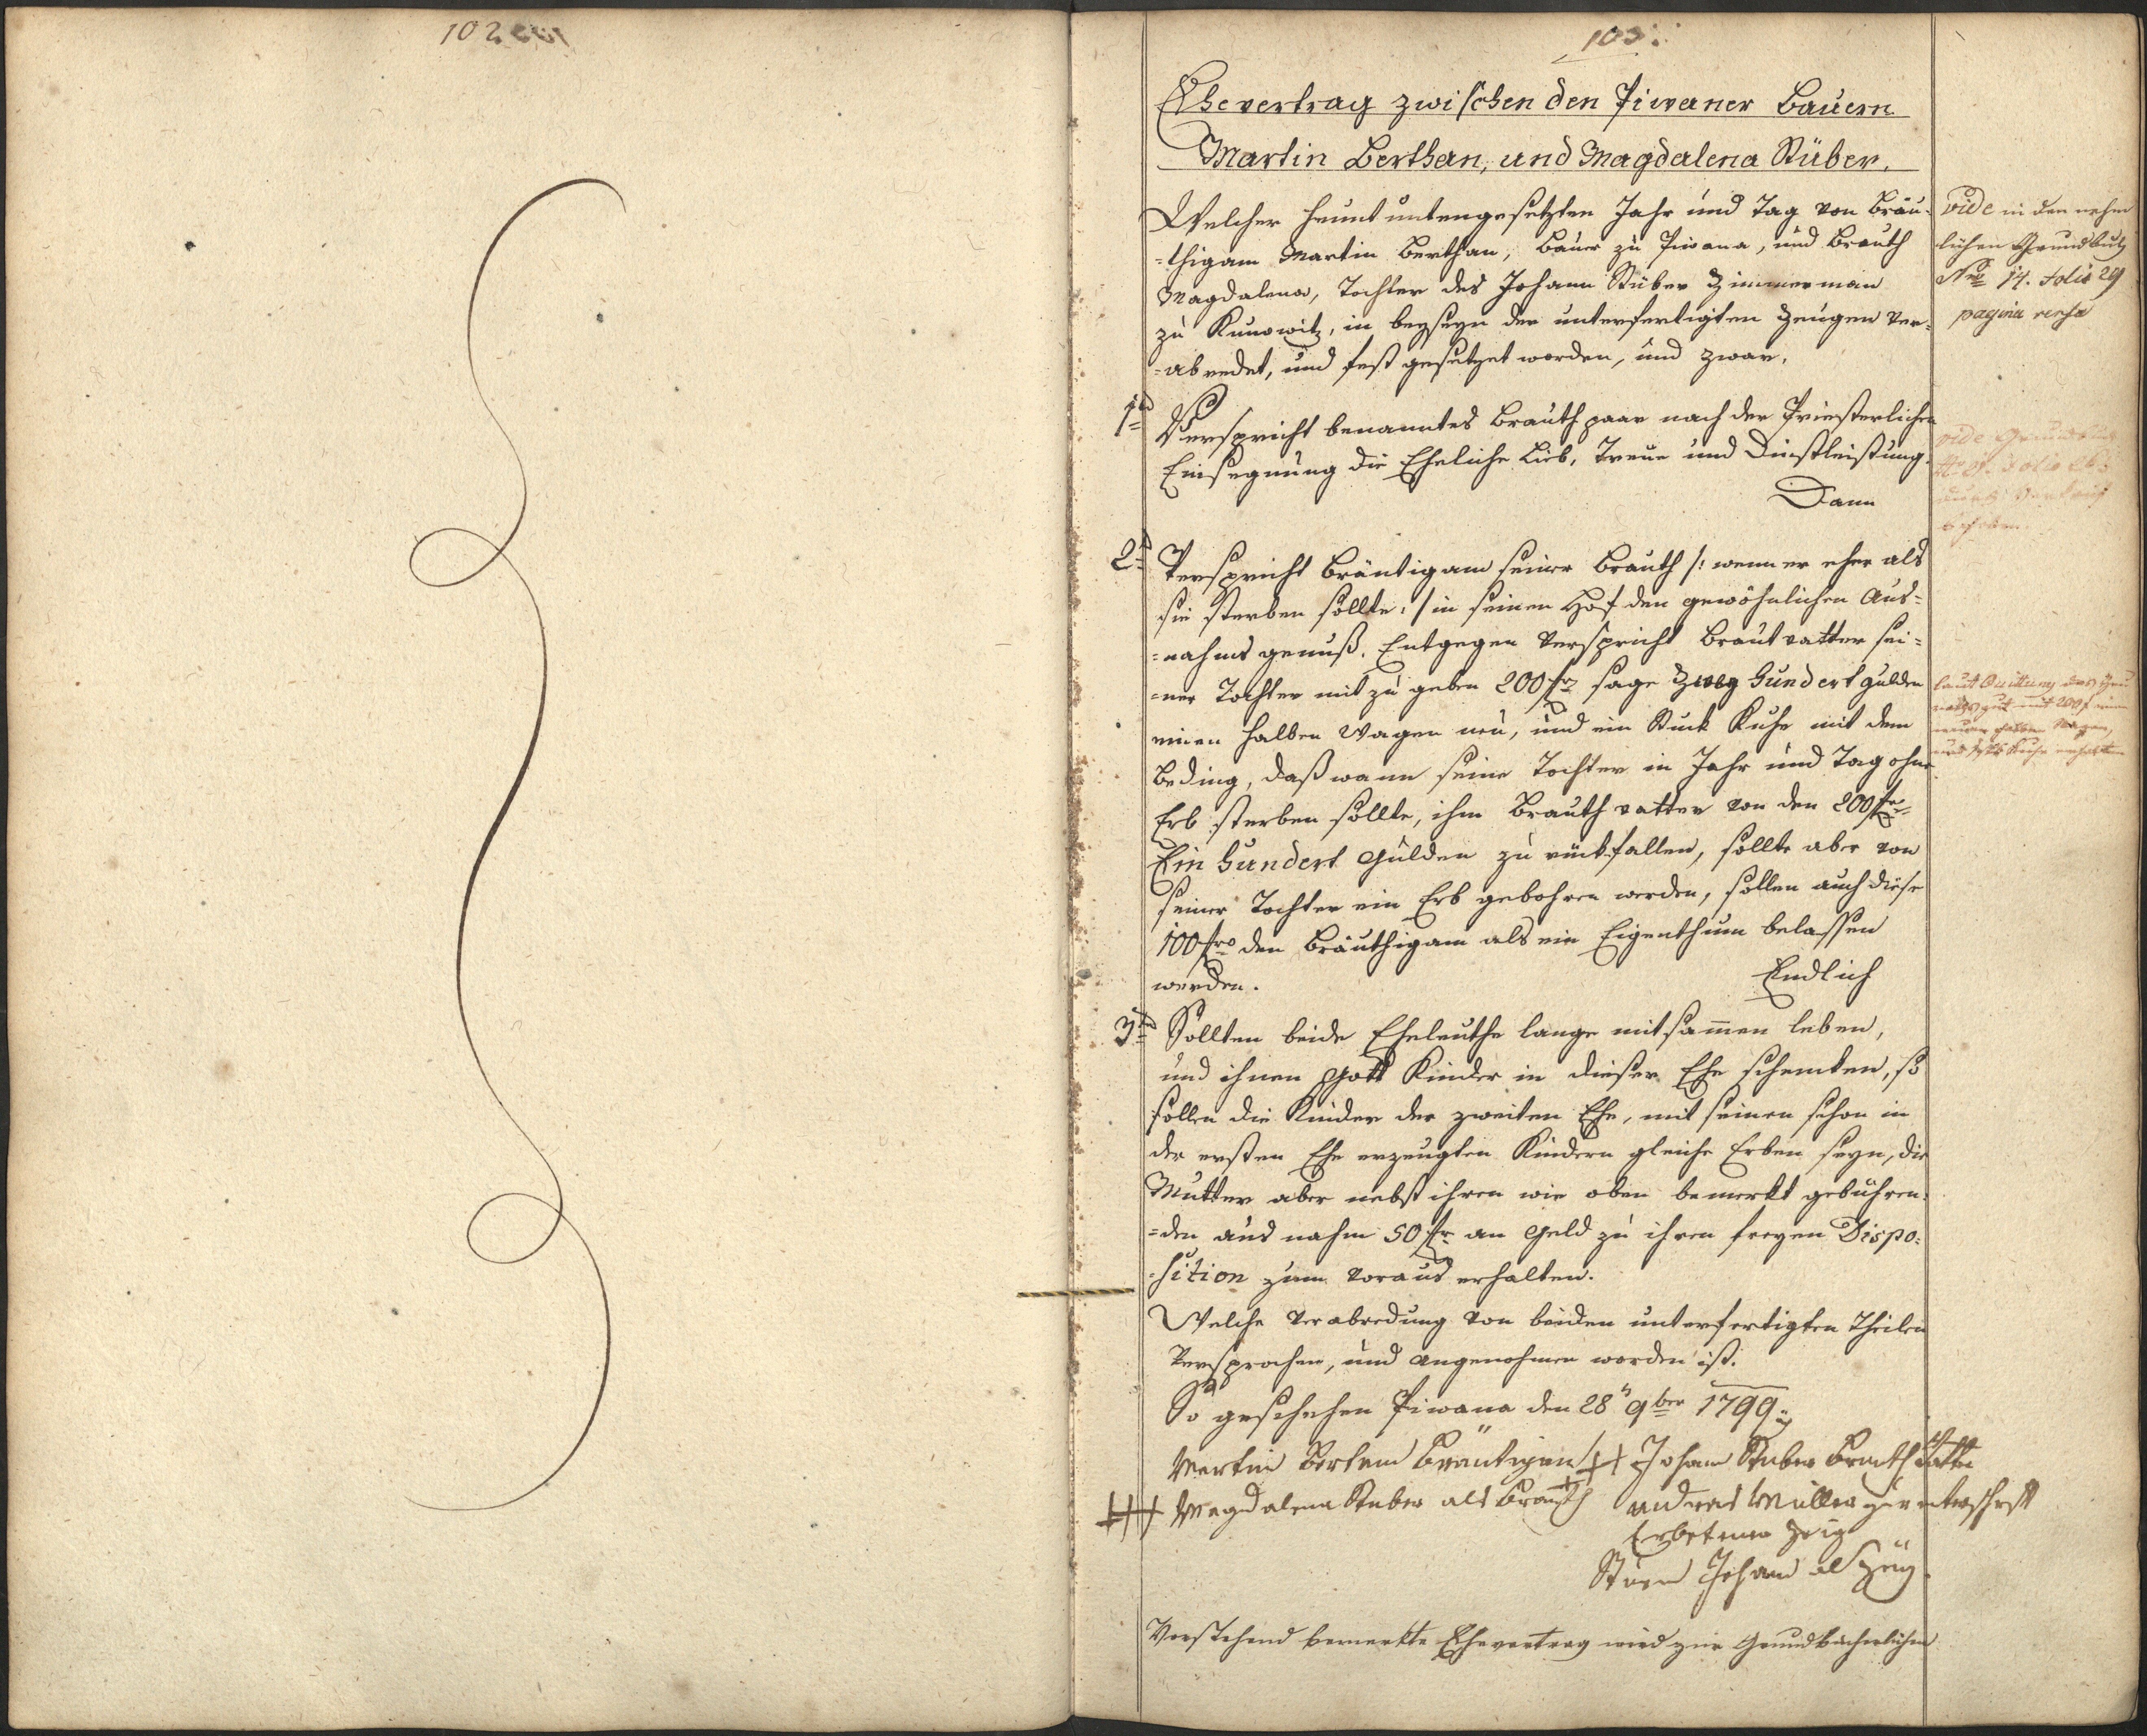 102
103.
Ehevertrag zwischen den Piwaner Bauern
Martin Berthan, und Magdalena Stüber.
Welcher heunt untengesetzten Jahr und Tag von Bräu-
=thigam Martin Berthan, Bauer zu Piwana, und Brauth
Magdalena, Tochter des Johann Stüber Zimmerman
zu Kunowitz, in beyseyn der unterfertigten Zeugen ver-
=abredet, und fest gesetzet worden, und zwar.
vide in den nehm
lichen Grundbuch
Nro 14. Folio 29
pagina versa
1tens Verspricht benanntes Brauth paar nach der Priesterlichen
Einsegnung die Eheliche Lieb, Treue und Dienstleistung.
Dann
vide
2tens Verspricht Bräutigam seiner Brauth /: wenn er eher als
sie sterben sollte :/ in seinen Hof den gewöhnlichen Aus-
=nahms genuß. Entgegen verspricht Brautvatter sei-
=ner Tochter mit zu geben 200 fr sage Zwey Hundert gulden
einen halben Wagen neu, und ein Stuck Kuhe mit dem
Beding, daß wann seine Tochter in Jahr und Tag ohne
Erb sterben sollte, ihm Brauth vatter von den 200 fr
Ein Hundert Gulden zu rückfallen, sollte aber von
seiner Tochter ein Erb gebohren werden, sollen auch diese
100 fr den Bräuthigam als ein Eigenthum belassen
werden. Endlich
laut Quittung das
gut mit 200 f
neuen halben Wagen,
und Kuhe erhalten
3tens Sollten beide Eheleuthe lange mitsammen leben,
und ihnen Gott Kinder in dieser Ehe schenken, so
sollen die Kinder der zweiten Ehe, mit seinen schon in
der ersten Ehe erzeugten Kindern gleiche Erben seyn, die
Mutter aber nebst ihren wie oben bemerkt gebühren-
=den aus nahm 50 fr an Geld zu ihren freyen Dispo-
=sition zum voraus erhalten.
Welche Verabredung von beiden unterfertigten Theilen
Versprochen, und angenohmen worden ist.
So geschehen Piwana den 28n 9ber 1799
Martin Bertan Bräutigam +++ Johann Stuber Brauth vatter
+++ Magdalena Stuber als Brauth Andreas Müller unterschrift
Erbetener Zeug
Johann als Zeug.
Vorstehend bemerkte Ehevertrag wird zur Grundbücherlichen